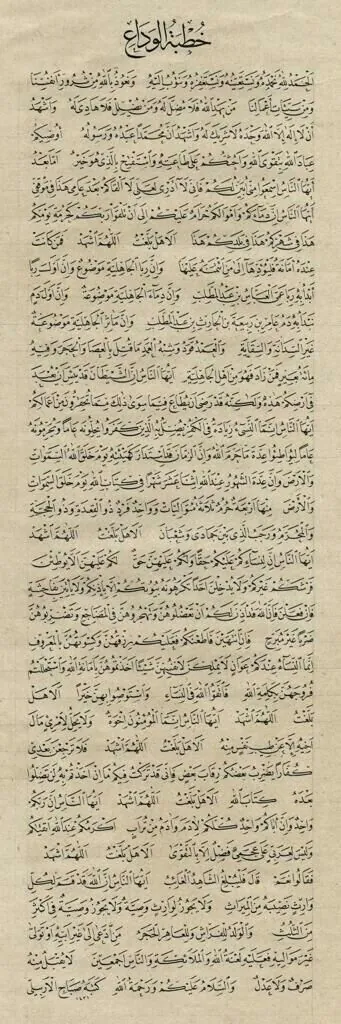 خطبة الوداع
الحمد لله نحمده ونستعينه ونستغفره ونتوب إليه ونعوذ بالله من شرور أنفسنا
ومن سيئات أعمالنا من يهد الله فلا مضل له ومن يضلل فلا هادي له وأشهد
أن لا إله إلا الله وحده لا شريك له وأشهد أن محمدا عبده ورسوله أوصيكم
عباد الله بتقوى الله وأحثكم على طاعته وأستفتح بالذي هو خير أما بعد
أيها الناس اسمعوا مني أبين لكم فإني لا أدري لعلي لا ألقاكم بعد عامي هذا في موقفي
أيها الناس إن دماءكم وأموالكم حرام عليكم إلى أن تلقوا ربكم كحرمة يومكم
هذا في شهركم هذا في بلدكم هذا ألا هل بلغت اللهم اشهد فمن كانت
عنده أمانة فليؤدها إلى من ائتمنه عليها وإن ربا الجاهلية موضوع وإن أول ربا
أبدأ به ربا عمي العباس بن عبد المطلب وإن دماء الجاهلية موضوعة وإن أول دم
نبدأ به دم عامر بن ربيعة بن الحارث بن عبد المطلب وإن مآثر الجاهلية موضوعة
غير السدانة والسقاية والعمد قود وشبه العمد ما قتل بالعصا والحجر وفيه
مائة بعير فمن زاد فهو من أهل الجاهلية أيها الناس إن الشيطان قد يئس أن يعبد
في أرضكم هذه ولكنه قد رضي أن يطاع فيما سوى ذلك مما تحقرون من أعمالكم
أيها الناس إنما النسيء زيادة في الكفر يضل به الذين كفروا يحلونه عاما ويحرمونه
عاما ليواطئوا عدة ما حرم الله وإن الزمان قد استدار كهيئته يوم خلق الله السموات
والأرض وإن عدة الشهور عند الله اثنا عشر شهرا في كتاب الله يوم خلق السموات
والأرض منها أربعة حرم ثلاثة متواليات وواحد فرد ذو القعدة وذو الحجة
والمحرم ورجب الذي بين جمادى وشعبان ألا هل بلغت اللهم اشهد
أيها الناس إن لنسائكم عليكم حقا ولكم عليهن حق لكم عليهن ألا يوطئن
فرشكم غيركم ولا يدخلن أحدا تكرهونه بيوتكم إلا بإذنكم ولا يأتين بفاحشة
فإن فعلن فإن الله قد أذن لكم أن تعضلوهن وتهجروهن في المضاجع وتضربوهن
ضربا غير مبرح فإن انتهين وأطعنكم فعليكم رزقهن وكسوتهن بالمعروف
إنما النساء عندكم عوان لا يملكن لأنفسهن شيئا أخذتموهن بأمانة الله واستحللتم
فروجهن بكلمة الله فاتقوا الله في النساء واستوصوا بهن خيرا ألا هل
بلغت اللهم اشهد أيها الناس إنما المؤمنون إخوة ولا يحل لامرئ مال
أخيه إلا عن طيب نفس منه ألا هل بلغت اللهم اشهد فلا ترجعن بعدي
كفارا يضرب بعضكم رقاب بعض فإني قد تركت فيكم ما إن أخذتم به لن تضلوا
بعده كتاب الله ألا هل بلغت اللهم اشهد أيها الناس إن ربكم
واحد وإن أباكم واحد كلكم لآدم وآدم من تراب أكرمكم عند الله أتقاكم
وليس لعربي على عجمي فضل إلا بالتقوى ألا هل بلغت اللهم اشهد
فقالوا نعم قال فليبلغ الشاهد الغائب أيها الناس إن الله قد قسم لكل
وارث نصيبه من الميراث ولا يجوز لوارث وصية ولا يجوز وصية في أكثر
من الثلث والولد للفراش وللعاهر الحجر من ادعى إلى غير أبيه أو تولى
غير مواليه فعليه لعنة الله والملائكة والناس أجمعين لا يقبل منه
صرف ولا عدل والسلام عليكم ورحمة الله كتبه صباح الأربيلي